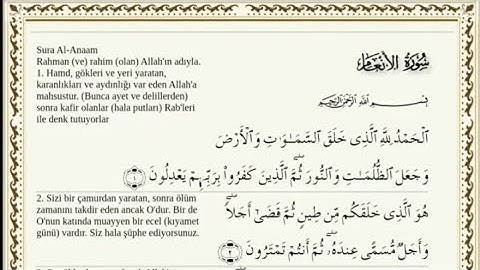 Sura Al-Anaam
Rahman (ve) rahim (olan) Allah'ın adıyla.
1. Hamd, gökleri ve yeri yaratan,
karanlıkları ve aydınlığı var eden Allah'a
mahsustur. (Bunca ayet ve delillerden)
sonra kafir olanlar (hala putları) Rab'leri
ile denk tutuyorlar
سورة الأنعام
بسم الله الرحمن الرحيم
ٱلْحَمْدُ لِلَّهِ ٱلَّذِى خَلَقَ ٱلسَّمَـٰوَٰتِ وَٱلْأَرْضَ
وَجَعَلَ ٱلظُّلُمَـٰتِ وَٱلنُّورَ ۖ ثُمَّ ٱلَّذِينَ كَفَرُوا۟ بِرَبِّهِمْ يَعْدِلُونَ ١
2. Sizi bir çamurdan yaratan, sonra ölüm
zamanını takdir eden ancak O'dur. Bir de
O'nun katında muayyen bir ecel (kıyamet
günü) vardır. Siz hala şüphe ediyorsunuz.
هُوَ ٱلَّذِى خَلَقَكُم مِّن طِينٍ ثُمَّ قَضَىٰٓ أَجَلًا ۖ
وَأَجَلٌ مُّسَمًّى عِندَهُۥ ۖ ثُمَّ أَنتُمْ تَمْتَرُونَ ٢